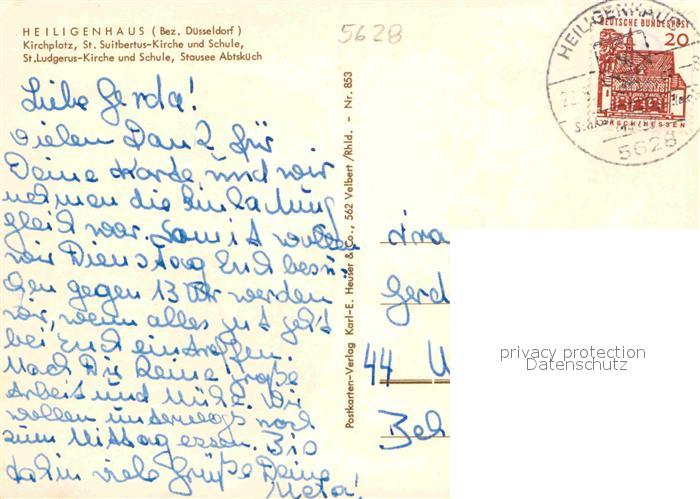 HEILIGENHAUS (Bez. Düsseldorf)
Kirchplatz, St. Suitbertus-Kirche und Schule,
St. Ludgerus-Kirche und Schule, Stausee Abtsküch
5628
Liebe Gerda!
vielen Dank für
Deine Karte und wir
nehmen die Einladung
gleich war. Somit wollen
wir Dienstag Euch besu
chen gegen 13 Uhr werden
wir, wenn alles gut geht
bei Euch eintreffen.
Mach Dir keine große
Arbeit und Mühe. Wir
wollen unterwegs noch
zum Mittag essen. Bis
dahin viele Grüße Deine
Meta!
Postkarten-Verlag Karl-E. Heuser & Co., 562 Velbert/Rhld. - Nr. 853
HEILIGENHAUS
5628
DEUTSCHE BUNDESPOST
20
LORSCH/HESSEN
Frau
Gerd
44
privacy protection
Datenschutz